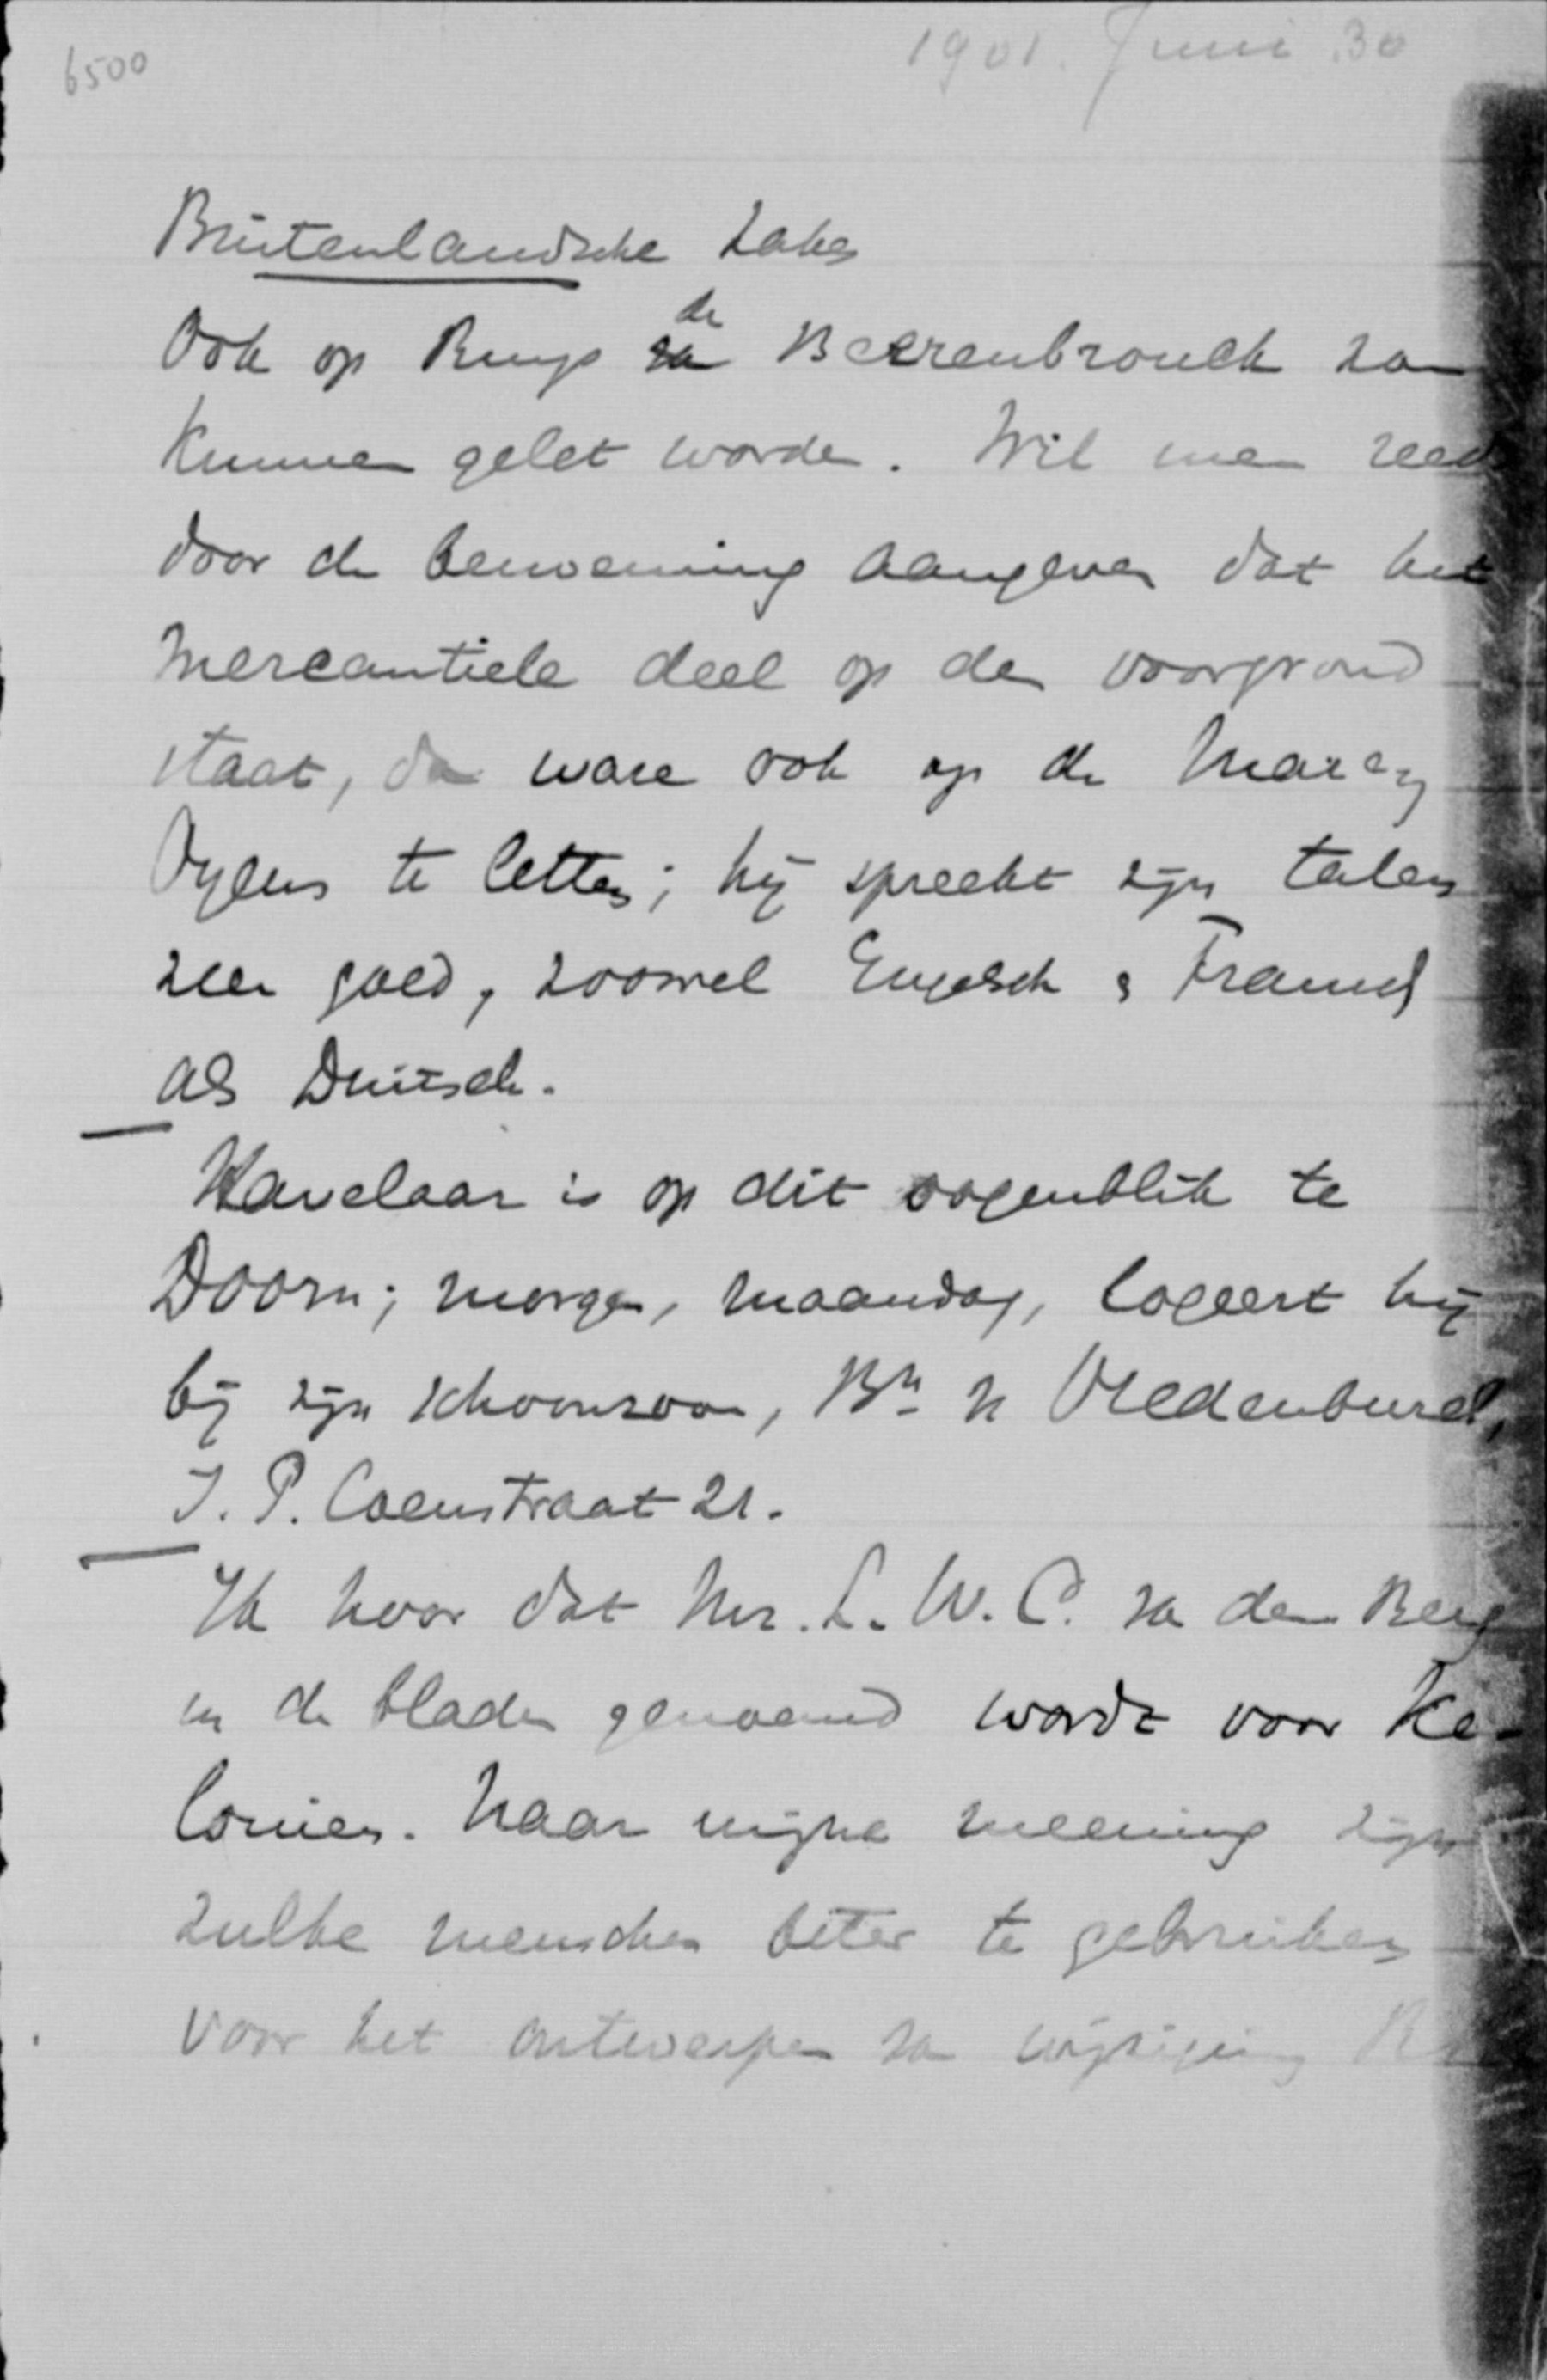 6500
1901. Juni 30
Buitenlandsche Zaken
Ook op Ruys de Beerenbrouck zou
kunnen gelet worden. Wil men reeds
door de benoeming aangeven dat het
mercantiele deel op den voorgrond
staat, dan ware ook op de Marez
Oyens te letten; hij spreekt zijn talen
zeer goed, zoowel Engelsch & Fransch
als Duitsch.
Havelaar is op dit oogenblik te
Doorn; morgen, maandag, logeert hij
bij zijn schoonzoon, Bn v Vredenburch,
J. P. Coenstraat 21.
Ik hoor dat Mr. L. W. C. van den Berg
in de bladen genoemd wordt voor Ko-
loniën. Naar mijne meening zijn
zulke menschen beter te gebruiken
voor het ontwerpen van wijziging